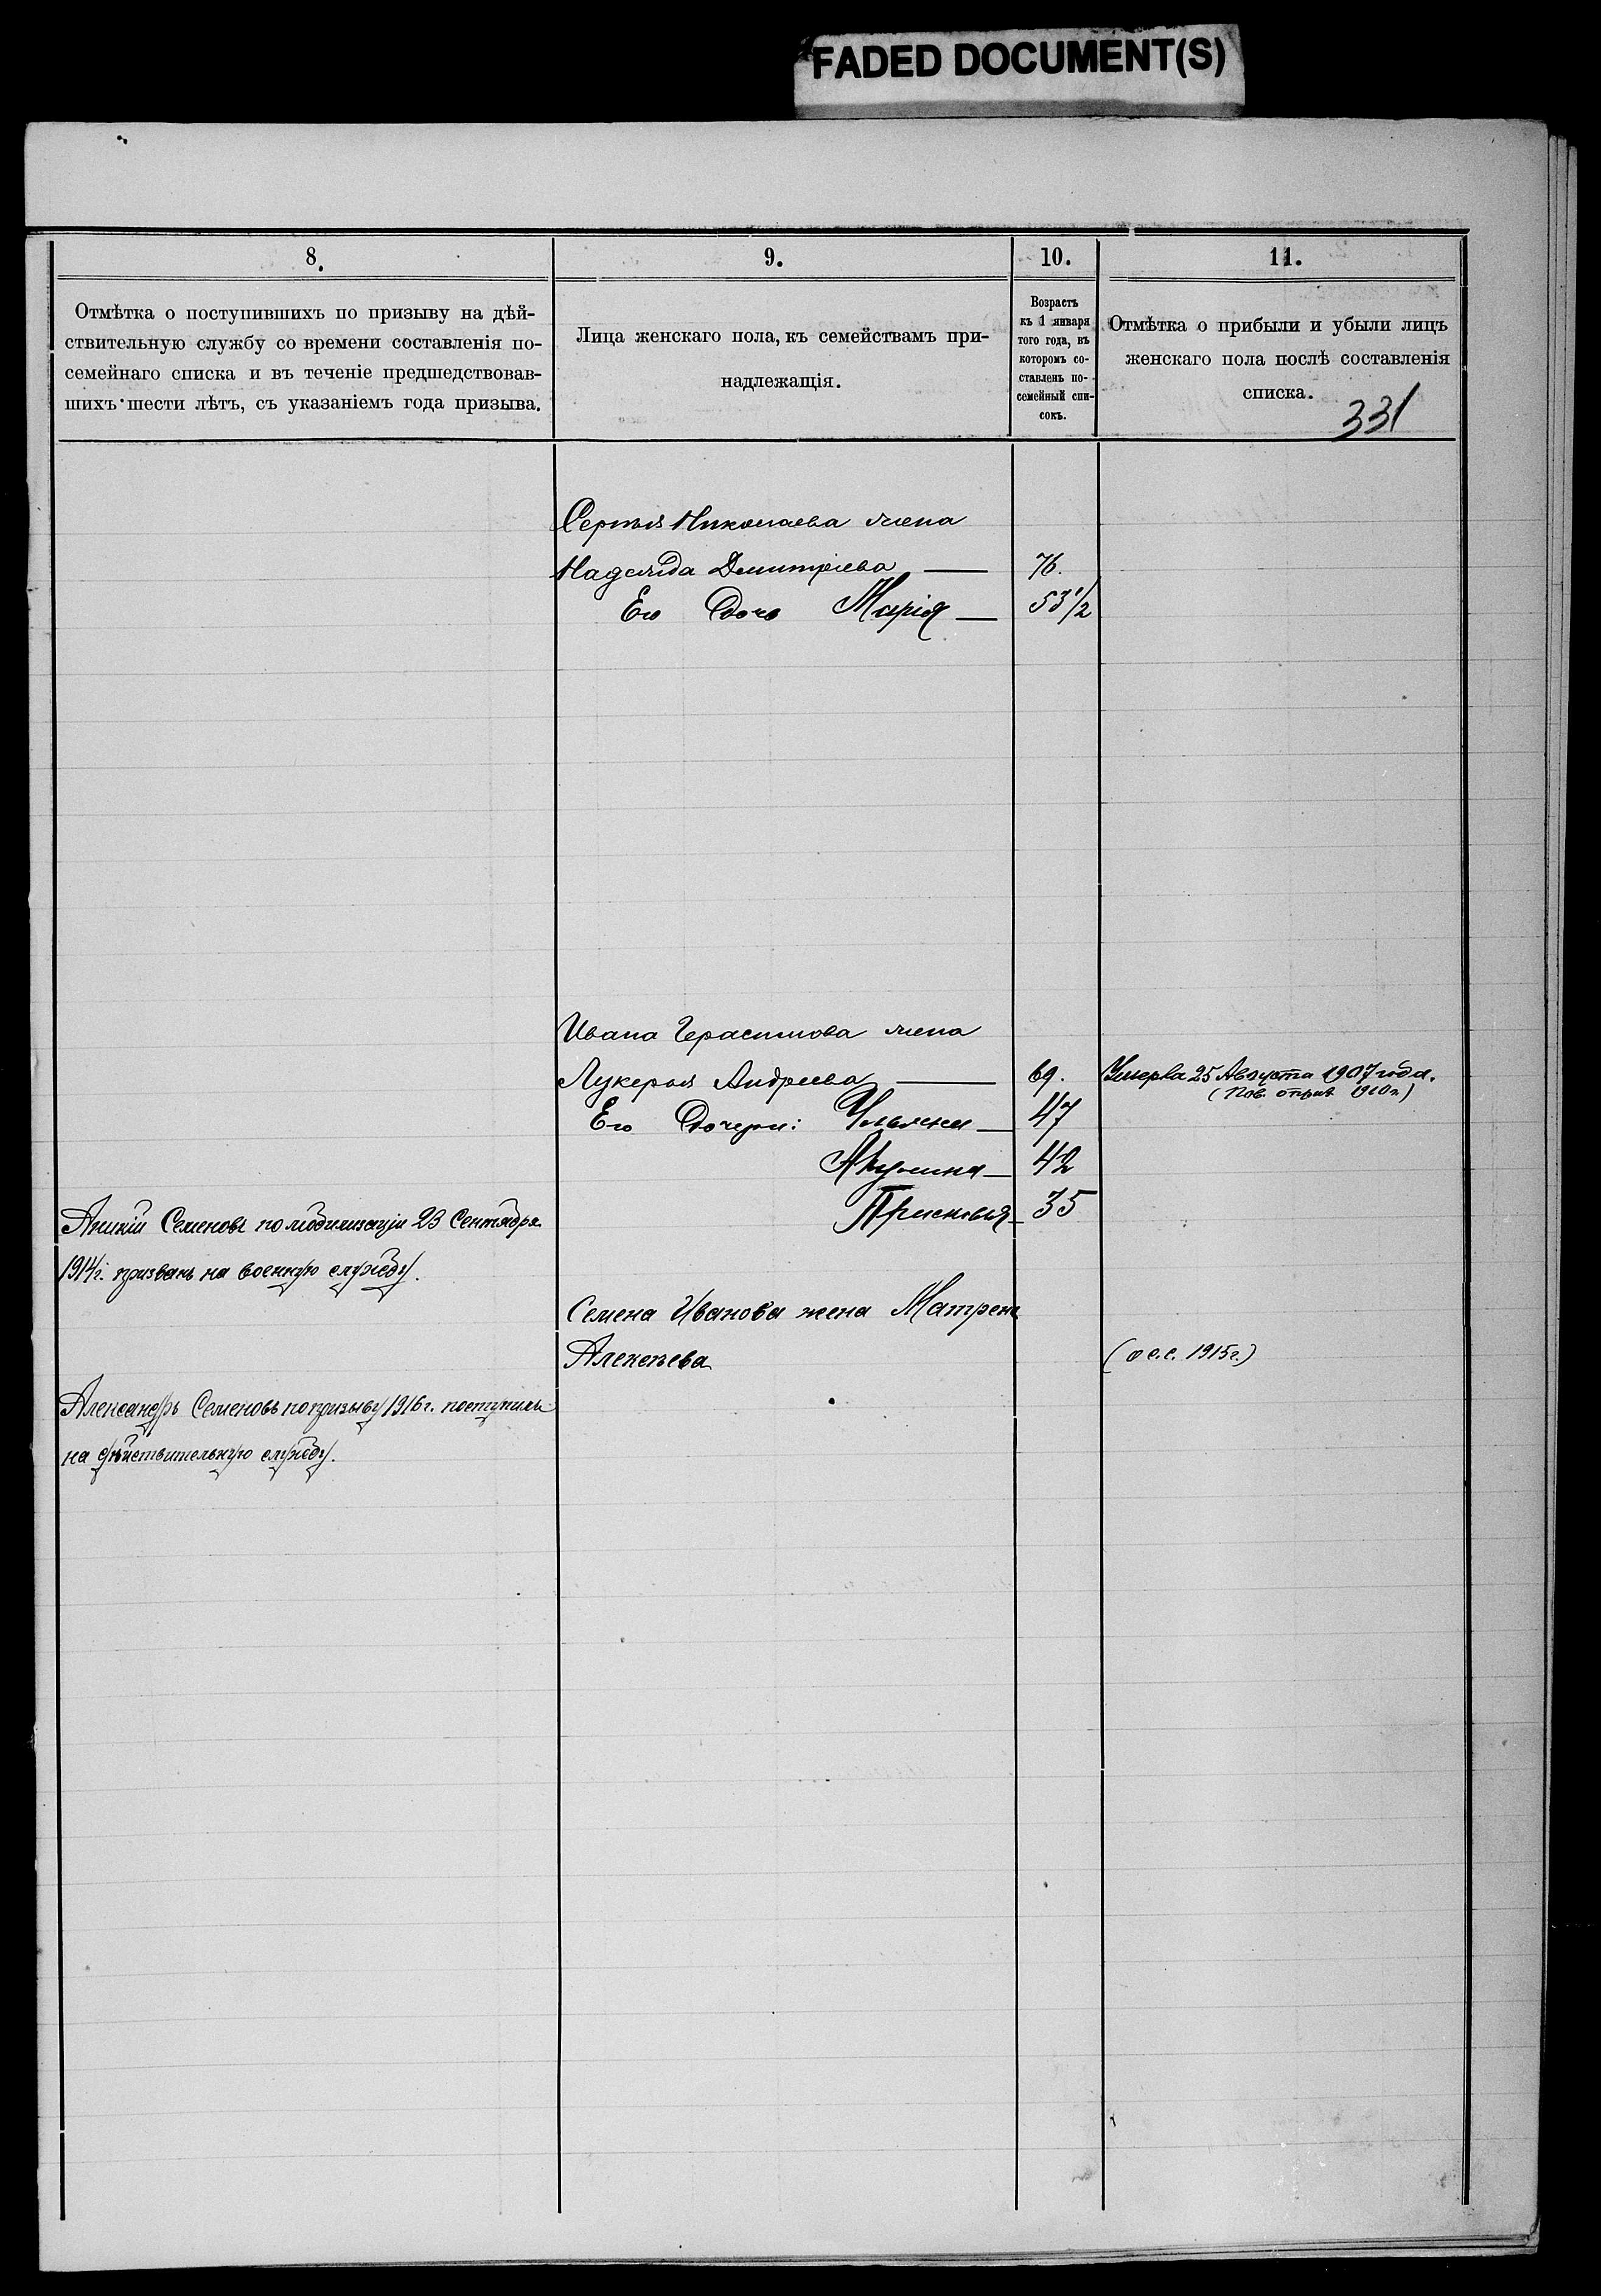 FADED DOCUMENT(S)
8.
9.
10.
11.
Отмѣтка о поступившихъ по призыву на дѣй-
ствительную службу со времени составленія по-
семейнаго списка и въ теченіе предшедствовав-
шихъ шести лѣтъ, съ указаніемъ года призыва.
Лица женскаго пола, къ семействамъ при-
надлежащія.
Возрастъ
къ 1 января
того года, въ
которомъ со-
ставленъ по-
семейный спи-
сокъ.
Отмѣтка о прибыли и убыли лицъ
женскаго пола послѣ составленія
списка.
331
Сергѣя Николаева жена
Надежда Дмитріева — 76.
Его дочь Марія — 53 1/2
Ивана Герасимова жена
Лукерья Андреева — 69. Умерла 25 Августа 1907 года.
(Пов. отрыв. 1910 г.)
Его дочери: Ульяна — 47
Акулина — 42
Прасковья — 35
Аникій Семеновъ по мобилизаціи 23 Сентября
1914 г. призванъ на военную службу.
Семена Иванова жена Матрена
Алексѣева
(о с.с. 1915 г.)
Александръ Семеновъ по призыву 1916 г. поступилъ
на дѣйствительную службу.